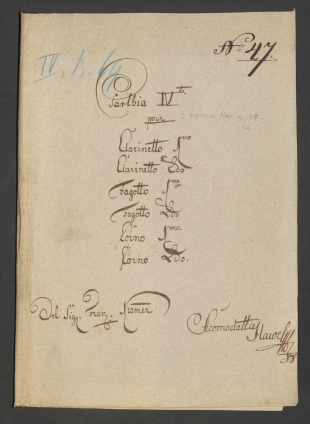 No: 47.
Parthia IV ta
pour
Clarinetto 1mo
Clarinetto 2do
Fagotto 1mo
Fagotto 2do
Corno 1mo.
Corno 2do.
Del Sigr. Franz. Kramer
Acomodatta Havel